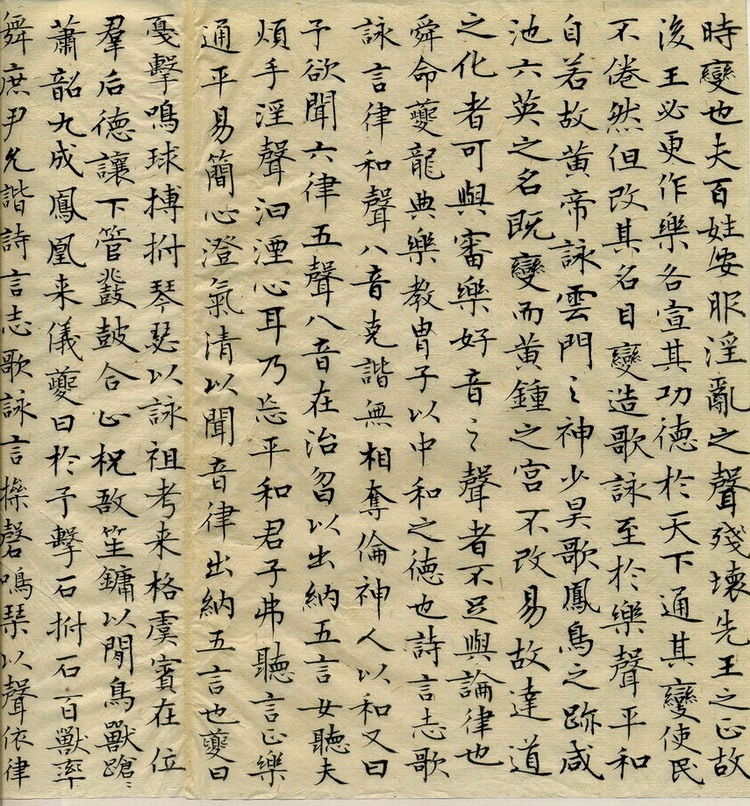 時變也夫百姓安服淫亂之聲殘壞先王之正故
後王必更作樂各宣其功德於天下通其變使民
不倦然但改其名目變造歌詠至於樂聲平和
自若故黃帝詠雲門之神少昊歌鳳鳥之跡咸
池六英之名既變而黃鍾之宮不改易故達道
之化者可與審樂好音之聲者不足與論律也
舜命夔龍典樂教冑子以中和之德也詩言志歌
詠言律和聲八音克諧無相奪倫神人以和又曰
予欲聞六律五聲八音在治曶以出納五言女聽夫
煩手淫聲汩湮心耳乃忘平和君子弗聽言正樂
通平易簡心澄氣清以聞音律出納五言也夔曰
戛擊鳴球搏拊琴瑟以詠祖考来格虞賓在位
羣后德讓下管鼗鼓合止柷敔笙鏞以閒鳥獸蹌〻
蕭韶九成鳳凰来儀夔曰於予擊石拊石百獸率
舞庶尹允諧詩言志歌詠言操磬鳴琴以聲依律